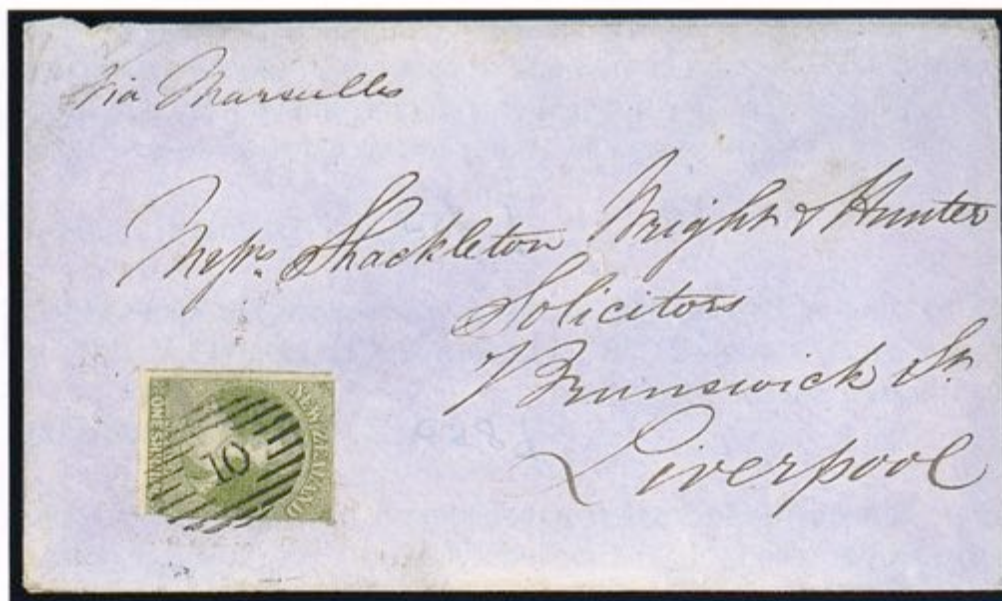 Via Marseilles
Messrs Shackleton Wright & Hunter
Solicitors
Brunswick St.
Liverpool
NEW ZEALAND
10
ONE SHILLING